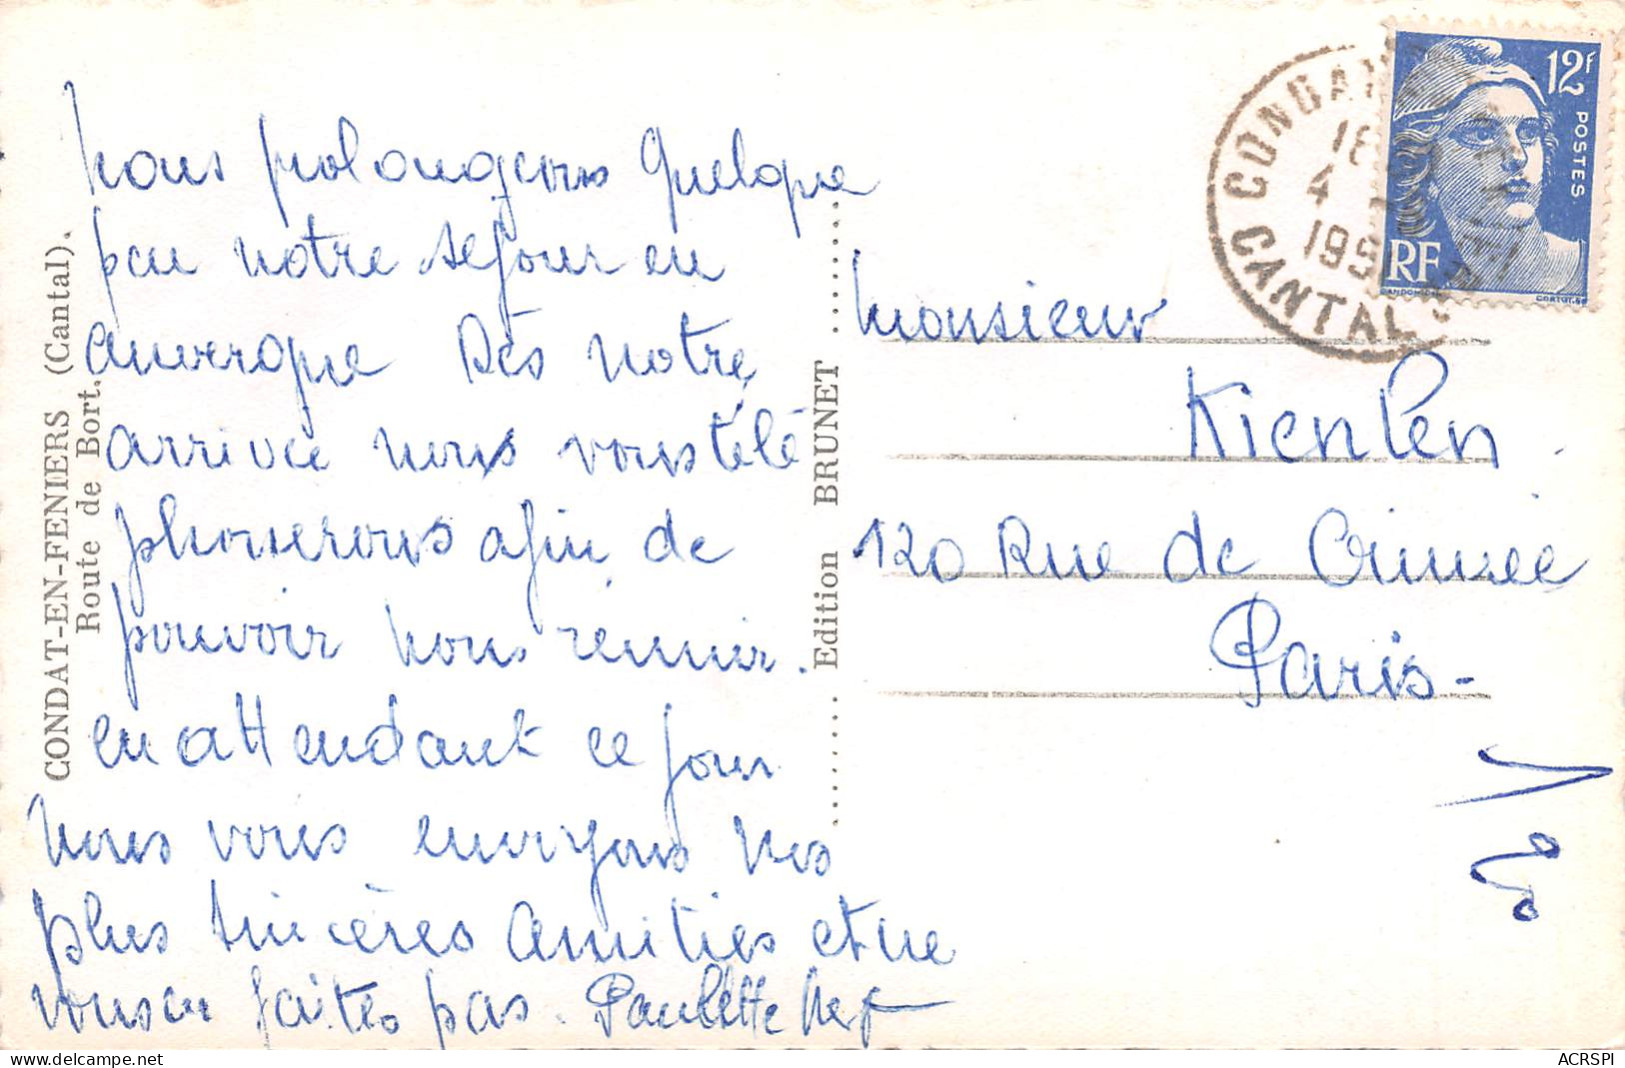 Nous prolongeons quelque
peu notre séjour en
auvergne Dès notre
arrivée nous vous télé
phonerons afin de
pouvoir nous réunir.
en attendant ce jour
nous vous envoyons nos
plus sincères amitiés et ne
vous en faites pas. Paulette
CONDAT-EN-FENIERS (Cantal).
Route de Bort.
Edition BRUNET
Monsieur
Kienlen
120 Rue de Crimée
Paris -
19
12f
POSTES
RF
CONDAT
CANTAL
18
4
195
ACRSPI
delcampe.net